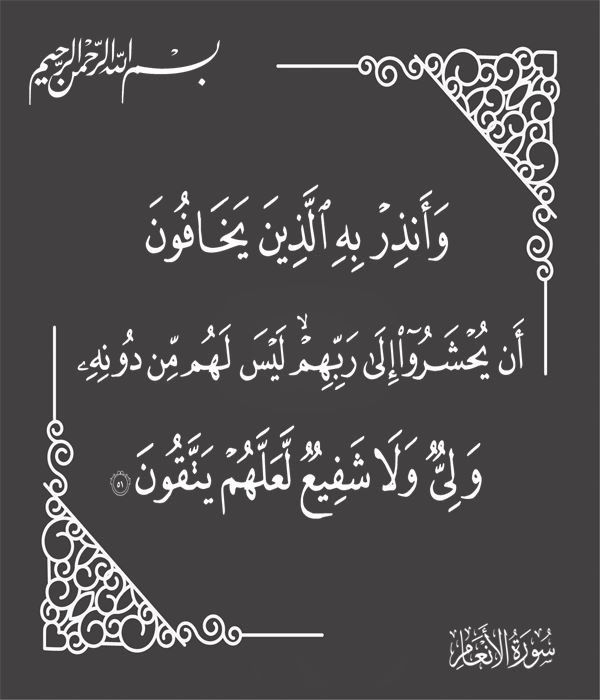 بسم الله الرحمن الرحيم
وَأَنذِرْ بِهِ ٱلَّذِينَ يَخَافُونَ
أَن يُحْشَرُوٓا۟ إِلَىٰ رَبِّهِمْ ۙ لَيْسَ لَهُم مِّن دُونِهِۦ
وَلِىٌّ وَلَا شَفِيعٌ لَّعَلَّهُمْ يَتَّقُونَ ٥١
سُورَةُ الأَنْعَامِ